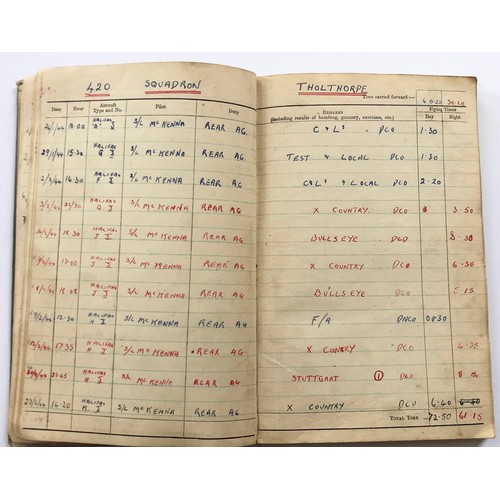 420 SQUADRON
THOLTHORPE
Time carried forward :—
Date Hour Aircraft Type and No. Pilot Duty
REMARKS (Including results of bombing, gunnery, exercises, etc.)
Flying Times
Day Night
HALIFAX S/L McKENNA REAR AG. C & L's DCO 1·30
15·30 HALIFAX G I S/L McKENNA REAR AG TEST & LOCAL DCO 1·30
16·30 HALIFAX F I S/L McKENNA REAR AG C&L's & LOCAL DCO 2·20
HALIFAX G. I S/L McKENNA REAR AG X COUNTRY DCO 3·50
18·30 HALIFAX J I S/L McKENNA REAR AG BULLSEYE DCO
HALIFAX J I S/L McKENNA REAR AG X COUNTRY DCO 6·30
HALIFAX J I S/L McKENNA REAR AG BULLSEYE DCO
HALIFAX H I S/L McKENNA REAR AG F/A DNCO 0830
17·35 HALIFAX H I S/L McKENNA REAR AG X CONTRY DCO
HALIFAX H I S/L McKENNA REAR AG STUTTGART 1 DCO
HALIFAX K. I S/L McKENNA REAR AG X COUNTRY DCO 6·40
TOTAL TIME 72·50 61·15